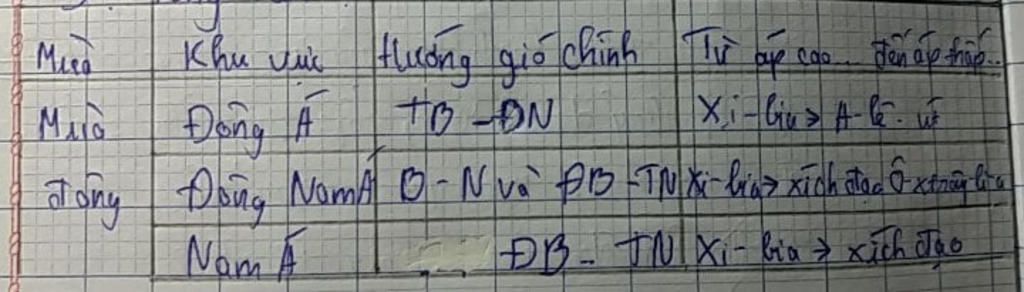 Mùa Khu vực Hướng gió chính Từ áp cao... đến áp thấp..
Mùa Đông Á TB - ĐN Xi-bia → A-lê-út
đông Đông Nam Á B - N và ĐB - TN Xi-bia → xích đạo Ô-xtrây-li-a
Nam Á ĐB - TN Xi-bia → xích đạo